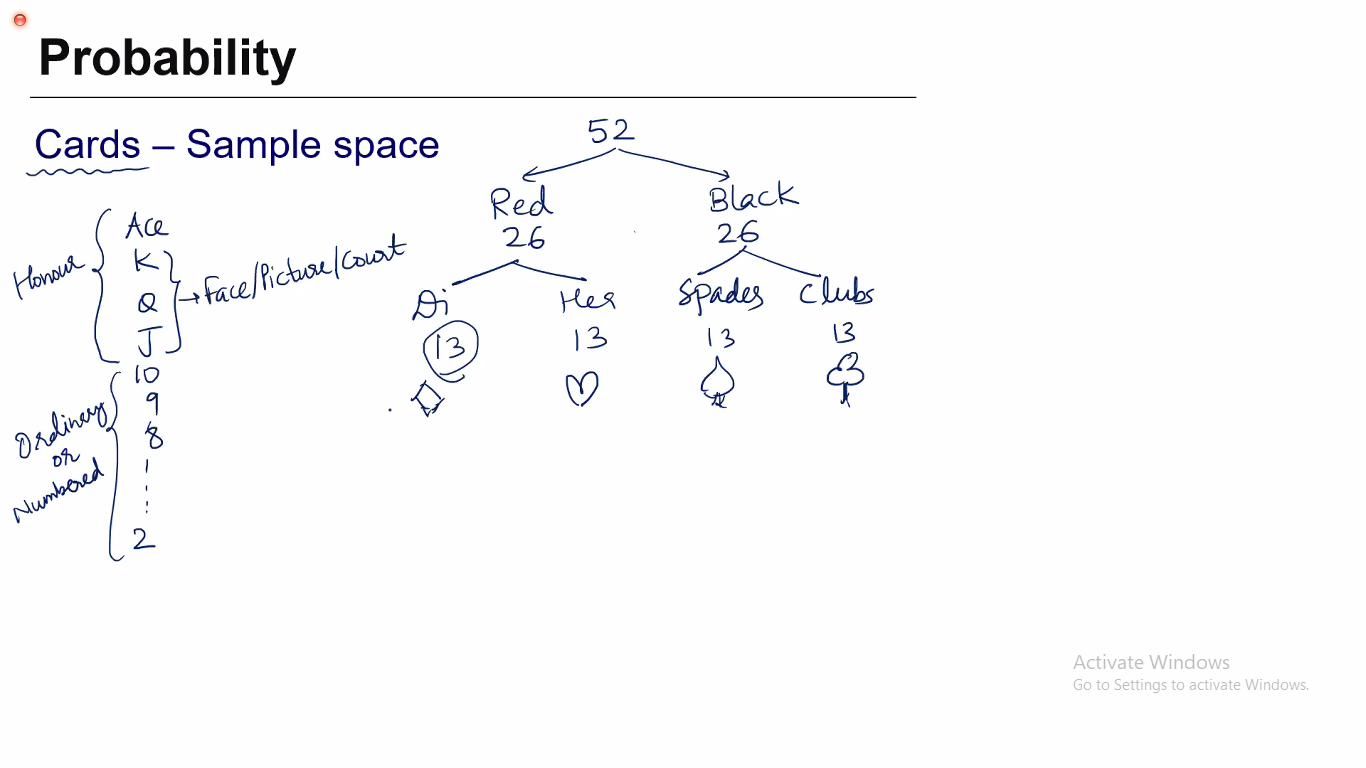 Probability
Cards – Sample space
52
Red
Black
26
26
Di
Hea
Spades
Clubs
13
13
13
13
Honour
Ace
K
Q
J
Face/Picture/Court
10
9
8
2
Ordinery
or
Numbered
Activate Windows
Go to Settings to activate Windows.